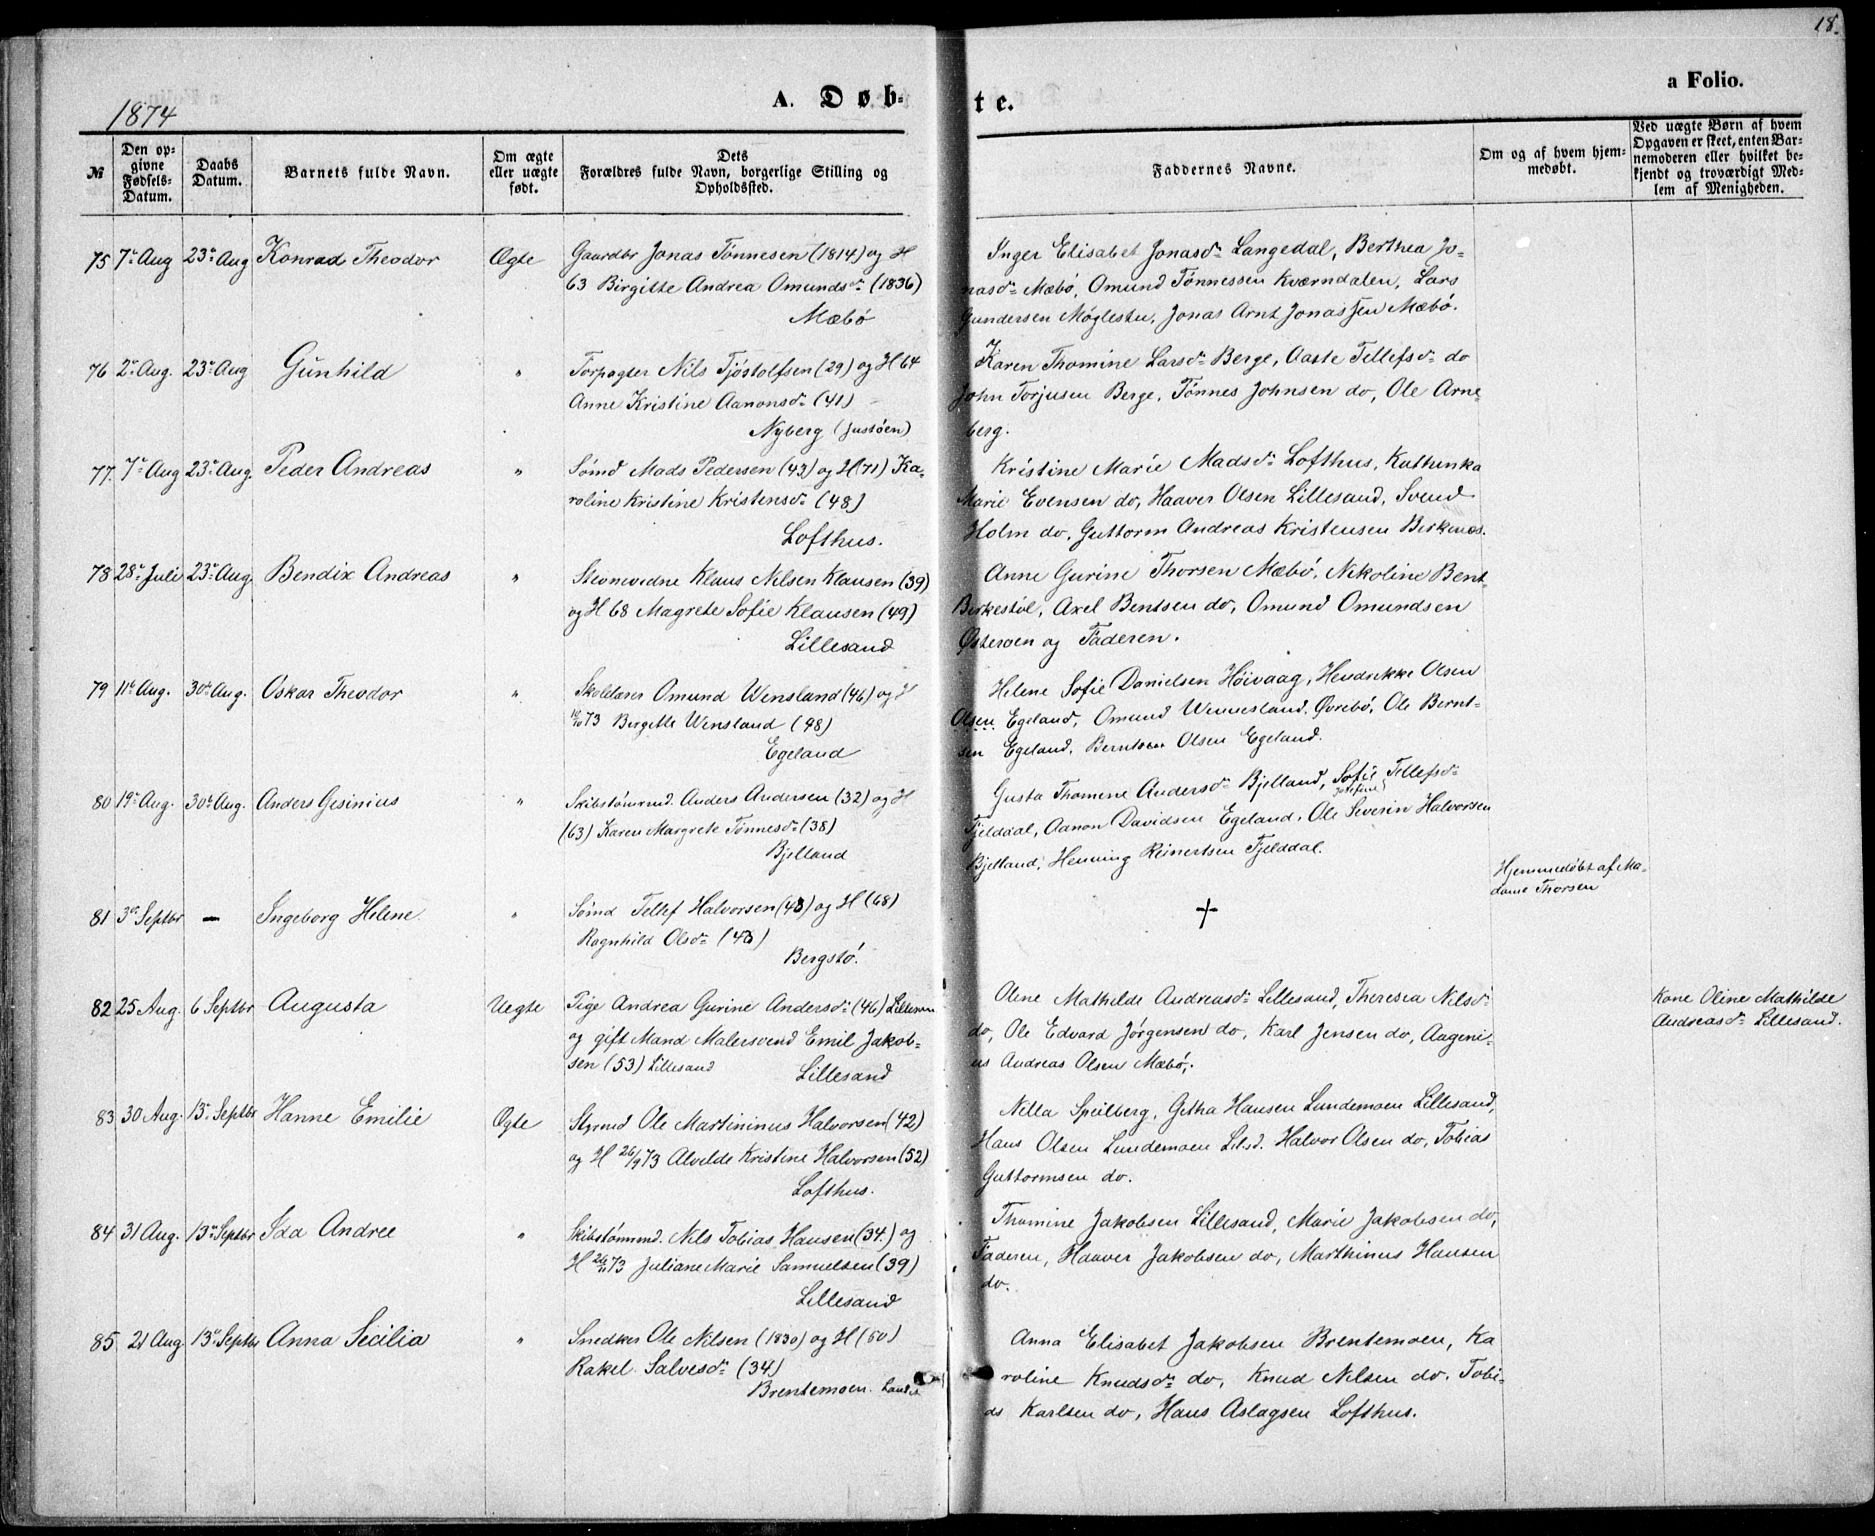 18.
1874
A. Døb-
te.
a Folio.
№
Den op-
givne
Fødsels-
Datum.
Daabs
Datum.
Barnets fulde Navn.
Om ægte
eller uægte
født.
Dets
Forældres fulde Navn, borgerlige Stilling og
Opholdssted.
Faddernes Navne.
Om og af hvem hjem-
medøbt.
Ved uægte Børn af hvem
Opgaven er skeet, enten Bar-
nemoderen eller hvilket be-
kjendt og troværdigt Med-
lem af Menigheden.
75 7de Aug 23de Aug Konrad Theodor Ægte Gaardbr Jonas Tønnesen (1814) og H
63 Birgitte Andrea Omundsdr (1836)
Mæbø
Inger Elisabet Jonasdr Langedal, Berthea Jo-
nasdr Mæbø, Omund Tønnessen Kværndalen, Lars
Gundersen Møglestu, Jonas Arnt Jonassen Mæbø.
76 2de Aug. 23de Aug Gunhild " Torpagter Nils Tjöstolfsen (29) og H 64
Anne Kristine Aanonsdr (41)
Nyberg (Justøen)
Karen Thomine Larsdr Berge, Aaste Tellefsdr do
John Torjusen Berge, Tønnes Johnsen do, Ole Arne-
berg.
77. 7de Aug 23de Aug. Peder Andreas " Sømd Mads Pedersen (43) og H (71) Ka-
roline Kristine Kristensdr (48)
Lofthus.
Kristine Marie Madsdr Lofthus, Kathinka
Marie Evensen do, Haaver Olsen Lillesand, Svend
Holm do, Guttorm Andreas Kristensen Birkenæs.
78 28de Juli 23de Aug. Bendix Andreas " Stevnevidne Klaus Nilsen Klausen (39)
og H 68 Magrete Sofie Klausen (49)
Lillesand
Anne Gurine Thorsen Mæbø, Nikoline Bent-
Birkestöl, Axel Bentsen do, Omund Omundsen
Østeroen og Faderen.
79 11te Aug. 30te Aug. Oskar Theodor " Skolelærer Omund Wensland (46) og H
73 Birgitte Wensland (48)
Egeland
Helene Sofie Danielsen Höivaag, Hendrikke Olsen
Olsen Egeland, Omund Wennesland, Øvrebø, Ole Bernt-
sen Egeland, Olsen Egeland.
80 19de Aug. 30te Aug. Anders Gesinius " Skibstömmd. Anders Andersen (32) og H
(63) Karen Margrete Tønnesdr (38)
Bjelland
Gusta Thomine Andersdr Bjelland, Sofie Josefine Tellefsdr
Fjelddal, Aanon Davidsen Egeland, Ole Severin Halvorsen
Bjelland, Henning Reinertsen Fjelddal.
81 3de Septbr — Ingeborg Helene " Sømd Tellef Halvorsen (43) og H (68)
Ragnhild Olsdr (43)
Bergstö.
†
Hjemmedøbt af Ma-
dame Thorsen
82 25 Aug. 6 Septbr Augusta Uegte Pige Andrea Gurine Andersdr (46) Lillesan
og gift Mand Malersvend Emil Jakob-
sen (53) Lillesand
Lillesand
Oline Mathilde Andreasdr Lillesand, Theresia Nilsdr
do, Ole Edvard Jörgensen do, Karl Jensen do, Aageni-
us Andreas Olsen Mæbø.
Kone Oline Mathilde
Andreasdr Lillesand.
83 30 Aug. 13de Septbr Hanne Emilie Ægte Styrmd Ole Martininus Halvorsen (42)
og H 26/9 73 Alvilde Kristine Halvorsen (52)
Lofthus.
Nilla Speilberg, Getha Hansen Lundemoen Lillesand,
Hans Olsen Lundemoen Lilsd. Halvor Olsen do, Tobias
Guttormsen do.
84 31 Aug. 13de Septbr Ida Andree " Skibstömmd. Nils Tobias Hansen (34.) og
H 73 Juliane Marie Samuelsen (39)
Lillesand
Thomine Jakobsen Lillesand, Marie Jakobsen do,
Faderen, Haaver Jakobsen do, Marthinus Hansen
do.
85. 21 Aug 13de Septbr Anna Secilia " Snedker Ole Nilsen (1830) og H (60)
Rakel Salvesdr (34)
Brentemoen.
Anna Elisabet Jakobsen Brentemoen, Ka
roline Knudsdr do, Knud Nilsen do. Tobi-
as Karlsen do, Hans Aslagsen Lofthus.